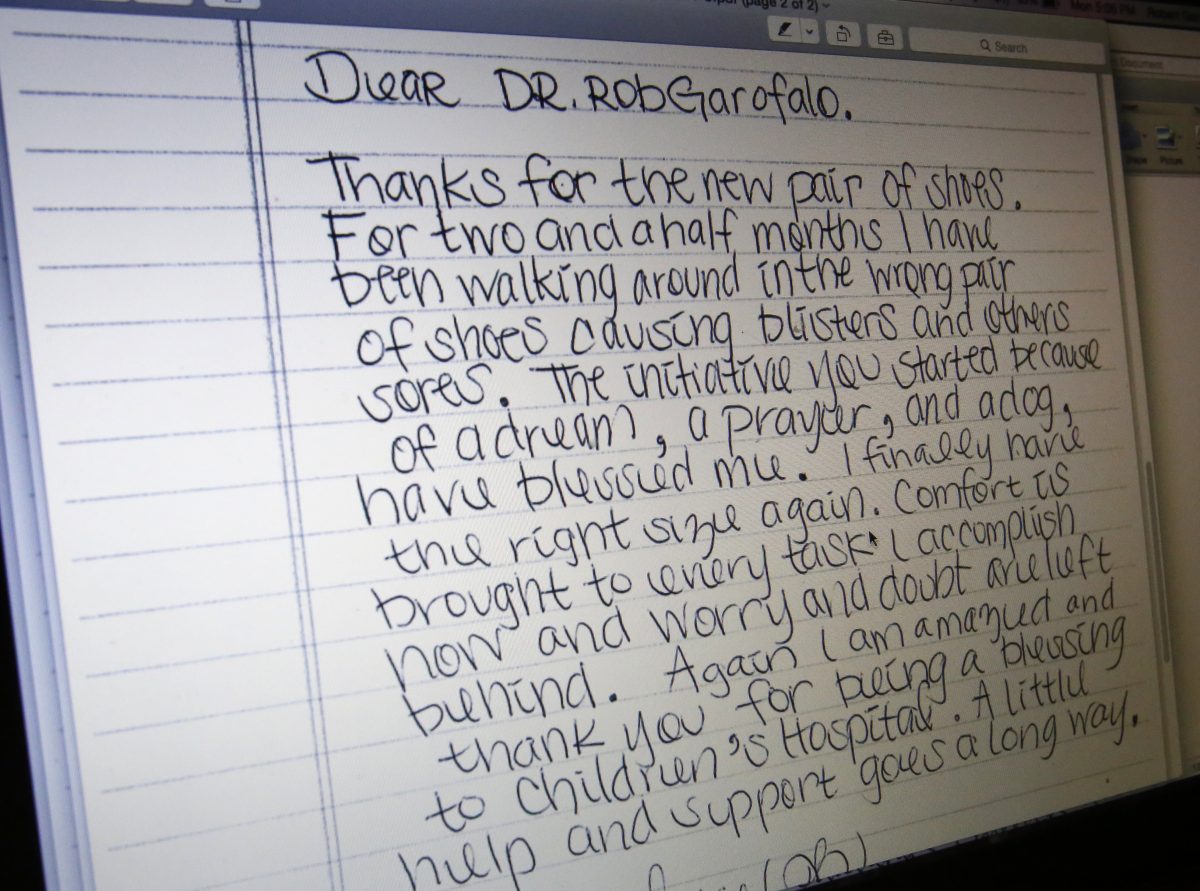 (page 2 of 2)
Mon 5:06 PM
Search
Document
Picture
Dear DR. Rob Garofalo.
Thanks for the new pair of shoes.
For two and a half months I have
been walking around in the wrong pair
of shoes causing blisters and others
sores. The initiative you started because
of a dream, a prayer, and a dog,
have blessed me. I finally have
the right size again. Comfort is
brought to every task I accomplish
now and worry and doubt are left
behind. Again I am amazed and
thank you for being a blessing
to Children's Hospital. A little
help and support goes a long way.